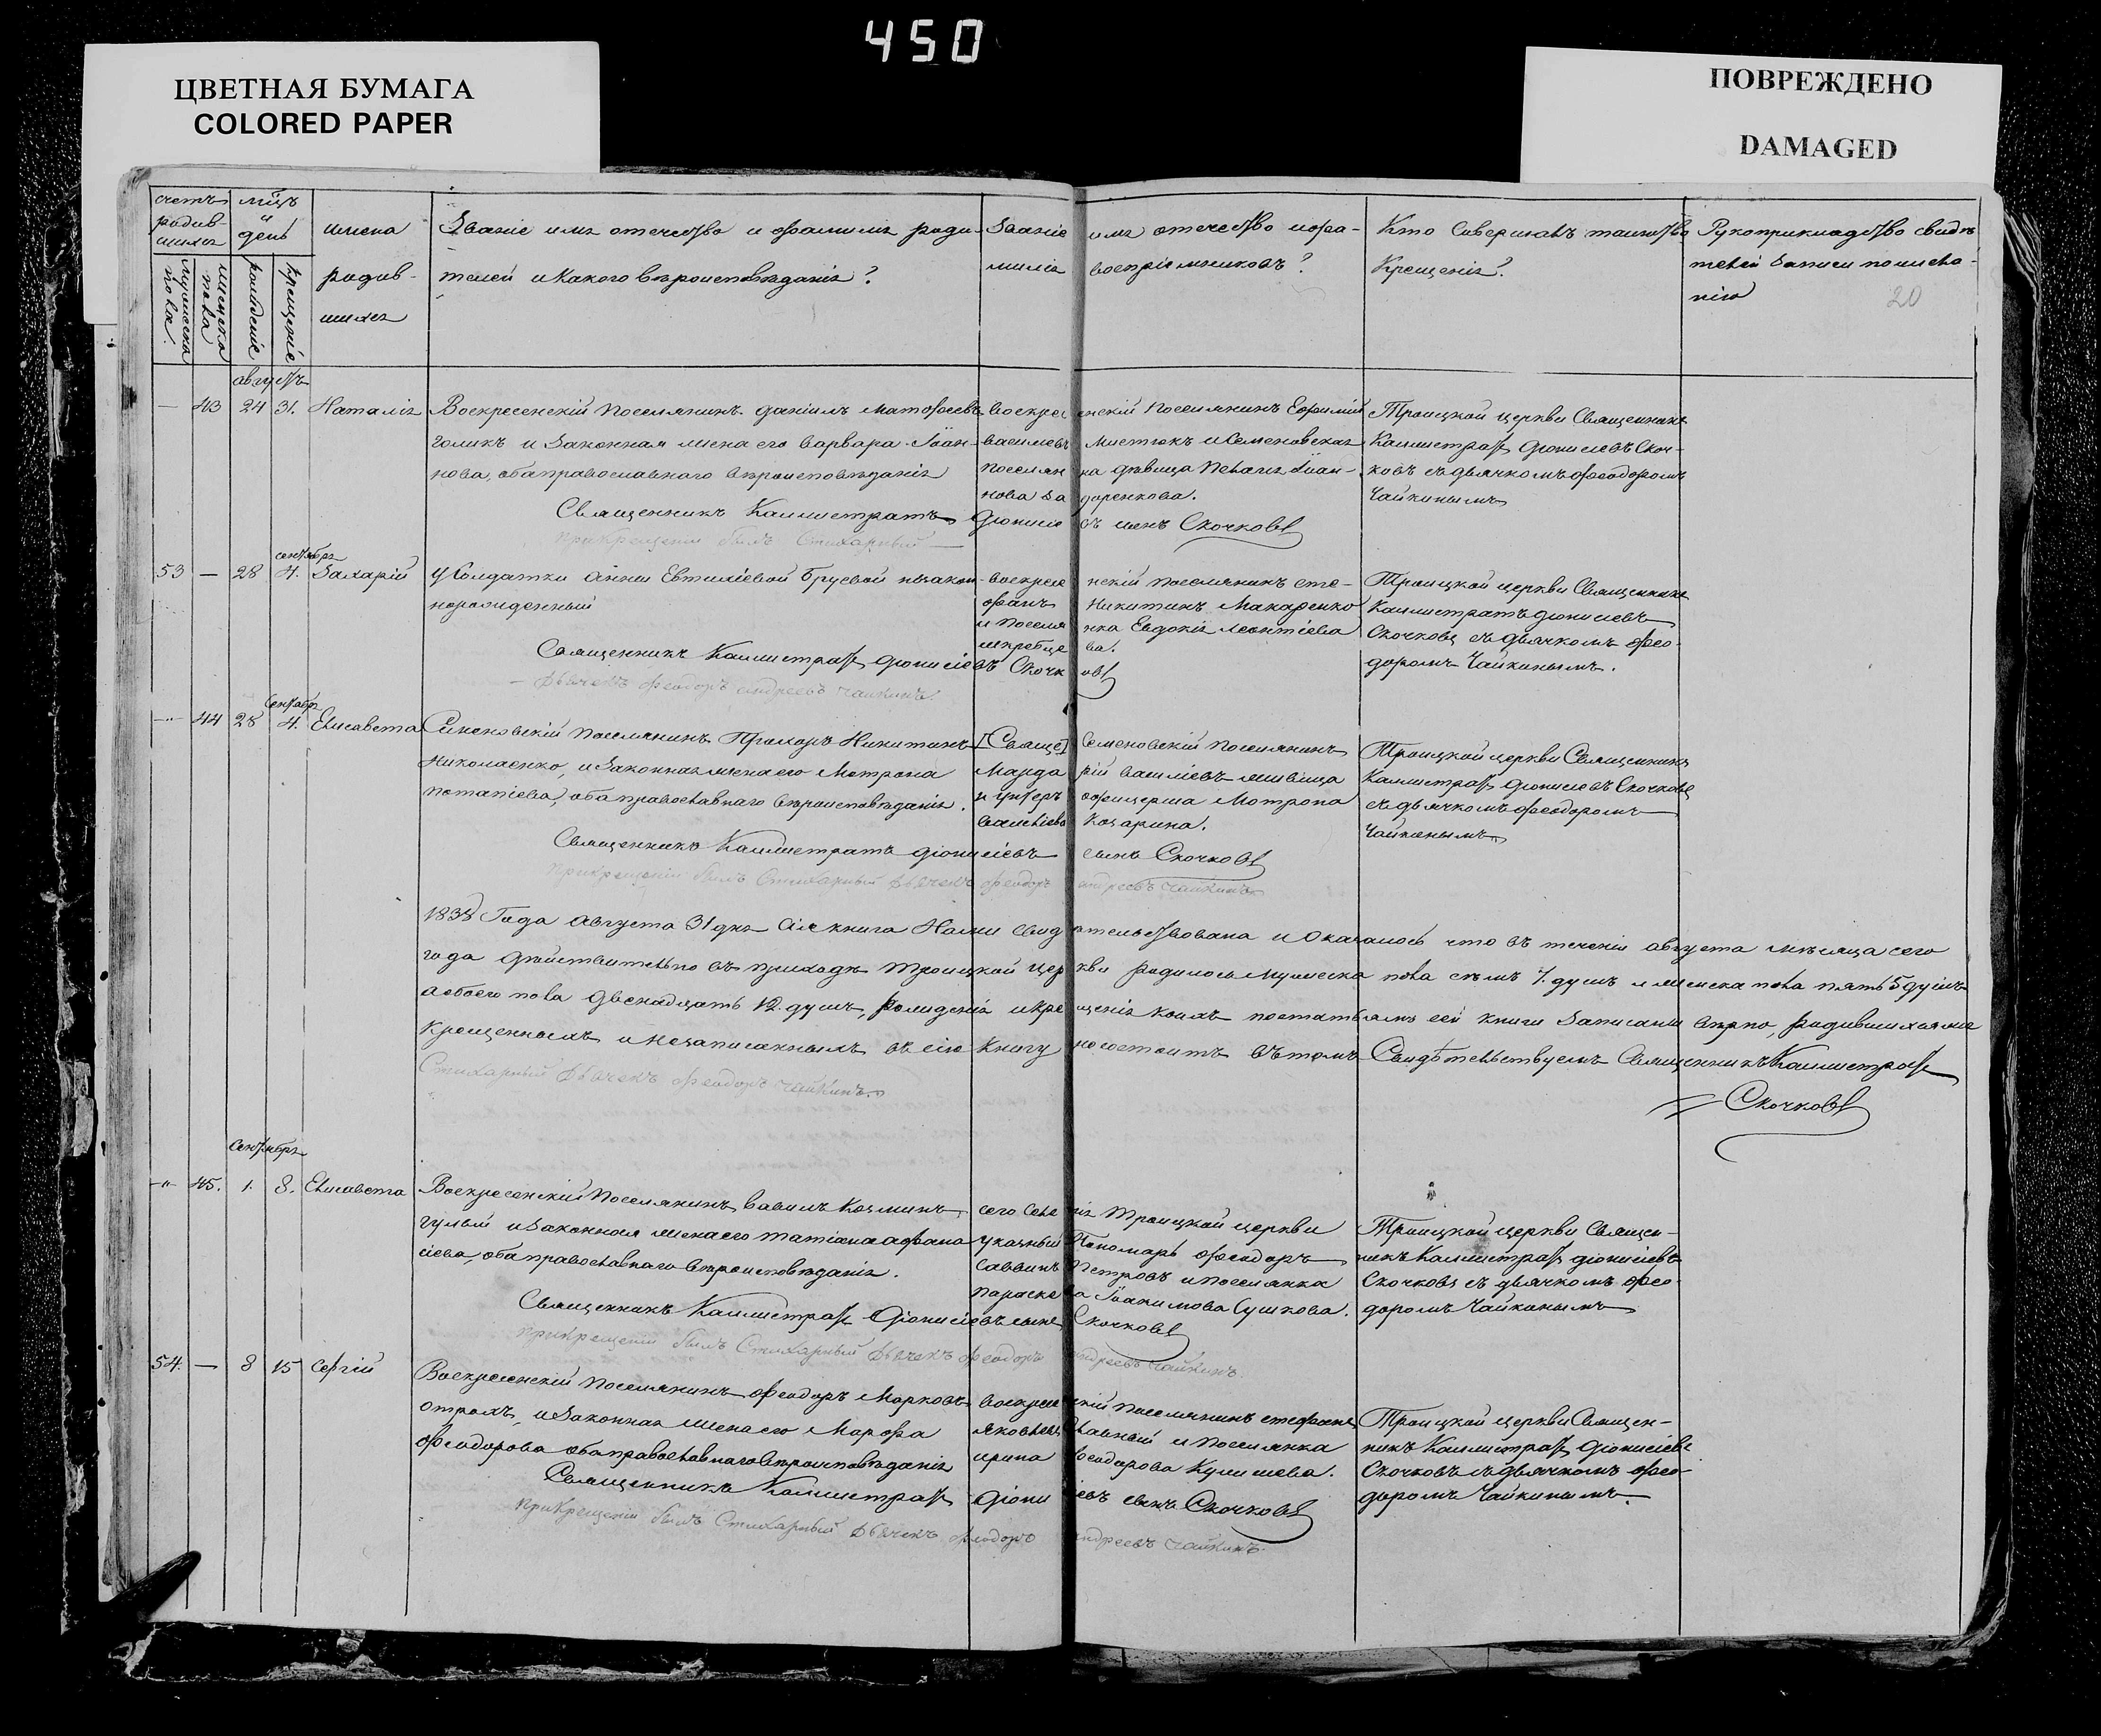 450
ЦВЕТНАЯ БУМАГА
COLORED PAPER
ПОВРЕЖДЕНО
DAMAGED
счетъ родившихся
мужеска пола.
женска пола
мѣсяцъ и день
рожденіе
крещеніе
имена родившихся
Званіе имя отечество и фамилія родителей и какого вѣроисповѣданія?
Званіе имя отечество и фамилія воспріемниковъ?
Кто совершалъ таинство Крещенія?
Рукоприкладство свидѣтелей записи по желанію
20
августъ
— 43 24 31. Наталія
Воскресенскій поселянинъ Даніилъ Матфеевъ
голикъ и законная жена его Варвара Іоан-
нова, оба православнаго вѣроисповѣданія
воскресенскій поселянинъ Ефимій
васильевъ Мистюкъ и Семеновская
поселянка дѣвица Пелагія Іоан-
нова Задоренкова.
Троицкой церкви Священникъ
Каллистратъ Діонисіевъ Скоч-
ковъ съ дьячкомъ Феодоромъ
Чайкинымъ
Священникъ Каллистратъ Діонисіевъ сынъ Скочковъ
при крещеніи былъ Стихарный —
сентября
53 — 28 4. Захарій
У солдатки Анны Евтихіевой Бруевой незакон-
норожденный
воскресенскій поселянинъ сте-
фанъ Никитинъ Макаренко
и поселянка Евдокія Леонтіева
Троицкой церкви Священникъ
Каллистратъ Діонисіевъ
Скочковъ съ дьячкомъ Фео-
доромъ Чайкинымъ.
Священникъ Каллистратъ Діонисіевъ Скочковъ
— Дьячекъ Феодоръ Андреевъ Чайкинъ.
Сентября
—"— 44 28 4. Елисавета
Семеновскій поселянинъ Прохоръ Никитинъ
Николаенко, и законная жена его Мотрона
Потапіева, оба православнаго вѣроисповѣданія.
[Свяще] Семеновскій поселянинъ
Мардарій васильевъ
и унтеръ офицерша Мотрона
васильева Козарина.
Троицкой церкви Священникъ
Каллистратъ Діонисіевъ Скочковъ
съ дьячкомъ Феодоромъ
Чайкинымъ
Священникъ Каллистратъ Діонисіевъ сынъ Скочковъ
при крещеніи былъ Стихарный Дьячекъ Феодоръ Андреевъ Чайкинъ
1838 Года Августа 31 дня сія книга Нами свидѣтельствована и оказалось что въ теченіи августа мѣсяца сего
года дѣйствительно въ приходѣ Троицкой церкви родилось мужеска пола семь 7. душъ и женска пола пять 5 душъ
а обоего пола двенадцать 12. душъ, рожденія и крещенія коихъ по статьямъ сей книги записаны вѣрно, родившихся же
крещенныхъ и незаписанныхъ въ сію книгу не состоитъ въ томъ Свидѣтельствуемъ Священникъ Каллистратъ
Скочковъ
Стихарный Дьячекъ Феодоръ Чайкинъ.
Сентября
—"— 45. 1. 8. Елисавета
Воскресенскій поселянинъ Вавилъ Козминъ
гулый и законная жена его Татіана Афана-
сіева, оба православнаго вѣроисповѣданія.
сего селенія Троицкой церкви
указный Пономарь Феодоръ
Саввинъ Петровъ и поселянка
Параскева Іоакимова Сушкова.
Троицкой церкви Священ-
никъ Каллистратъ Діонисіевъ
Скочковъ съ дьячкомъ Фео-
доромъ Чайкинымъ
Священникъ Каллистратъ Діонисіевъ сынъ Скочковъ
при крещеніи былъ Стихарный Дьячекъ Феодоръ Андреевъ Чайкинъ.
54. — 8 15 Сергій
Воскресенскій поселянинъ Феодоръ Марковъ
Отрохъ, и законная жена его Марфа
Феодорова оба православнаго вѣроисповѣданія
воскресенскій поселянинъ стефанъ
Яковлевъ и поселянка
ирина Феодорова Кулишева.
Троицкой церкви Священ-
никъ Каллистратъ Діонисіевъ
Скочковъ съ дьячкомъ Фео-
доромъ Чайкинымъ.
Священникъ Каллистратъ Діонисіевъ сынъ Скочковъ
при крещеніи былъ Стихарный Дьячекъ Феодоръ Андреевъ Чайкинъ.